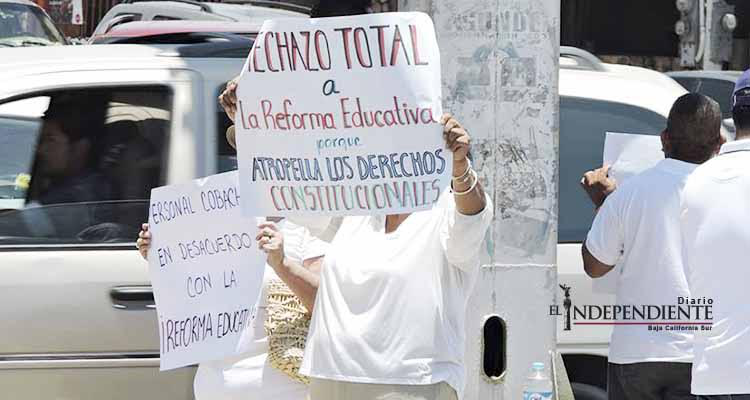 RECHAZO TOTAL
a
La Reforma Educativa
porque
ATROPELLA LOS DERECHOS
CONSTITUCIONALES
PERSONAL COBACH
EN DESACUERDO
CON LA
¡REFORMA EDUCATI
Diario
EL INDEPENDIENTE
Baja California Sur